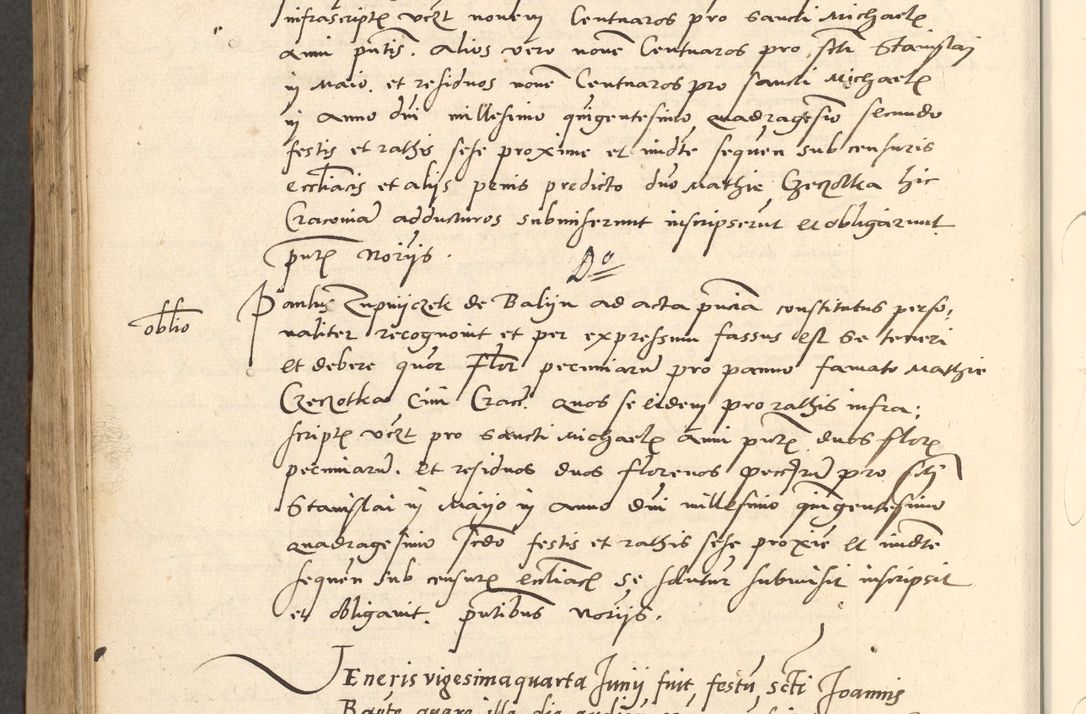 infrascriptis vczt novem Centnaros pro Sancti Michaelis
anni pntis. alios vero novē Centnaros pro scti Stanislai
ij Maio. et residuos novē Centnaros pro Sancti Michaelis
ij anno dni millesimo quigentesimo quadragesio secundo
festis et rathis sese proxime et imdte sequen sub censuris
ecclīacis et alijs penis predicto dno Mathie Czeczotka hic
Cracoviā adducturos submiserunt inscripserūt et obligarunt
pntē Norijs.
Dº
oblio
Paulus Zupnijczek de Balijn ad acta pncia constitutus perso,
naliter recognovit et per expressum fassus est Se teneri
et debere quor Flor pecuniarū pro panno famato Mathie
Czeczotka Civi Crac. quos se eidem pro rathis infra,
scriptis vczt pro Sancti Michaelis anni pntis duos flore
pecuniarū. et residuos duos florenos pecc̄rū pro scti
Stanislai ij Maijo ij anno dni millesimo quigentesimo
quadragesimo scdo festis et rathis sese proxīe et imdte
sequen sub censuris ecclīacis se solutur submisit inscripsit
et obligavit. pntibus Norijs.
Veneris vigesimaquarta Junij fuit festū, scti Joannis
Bapte quare illa die